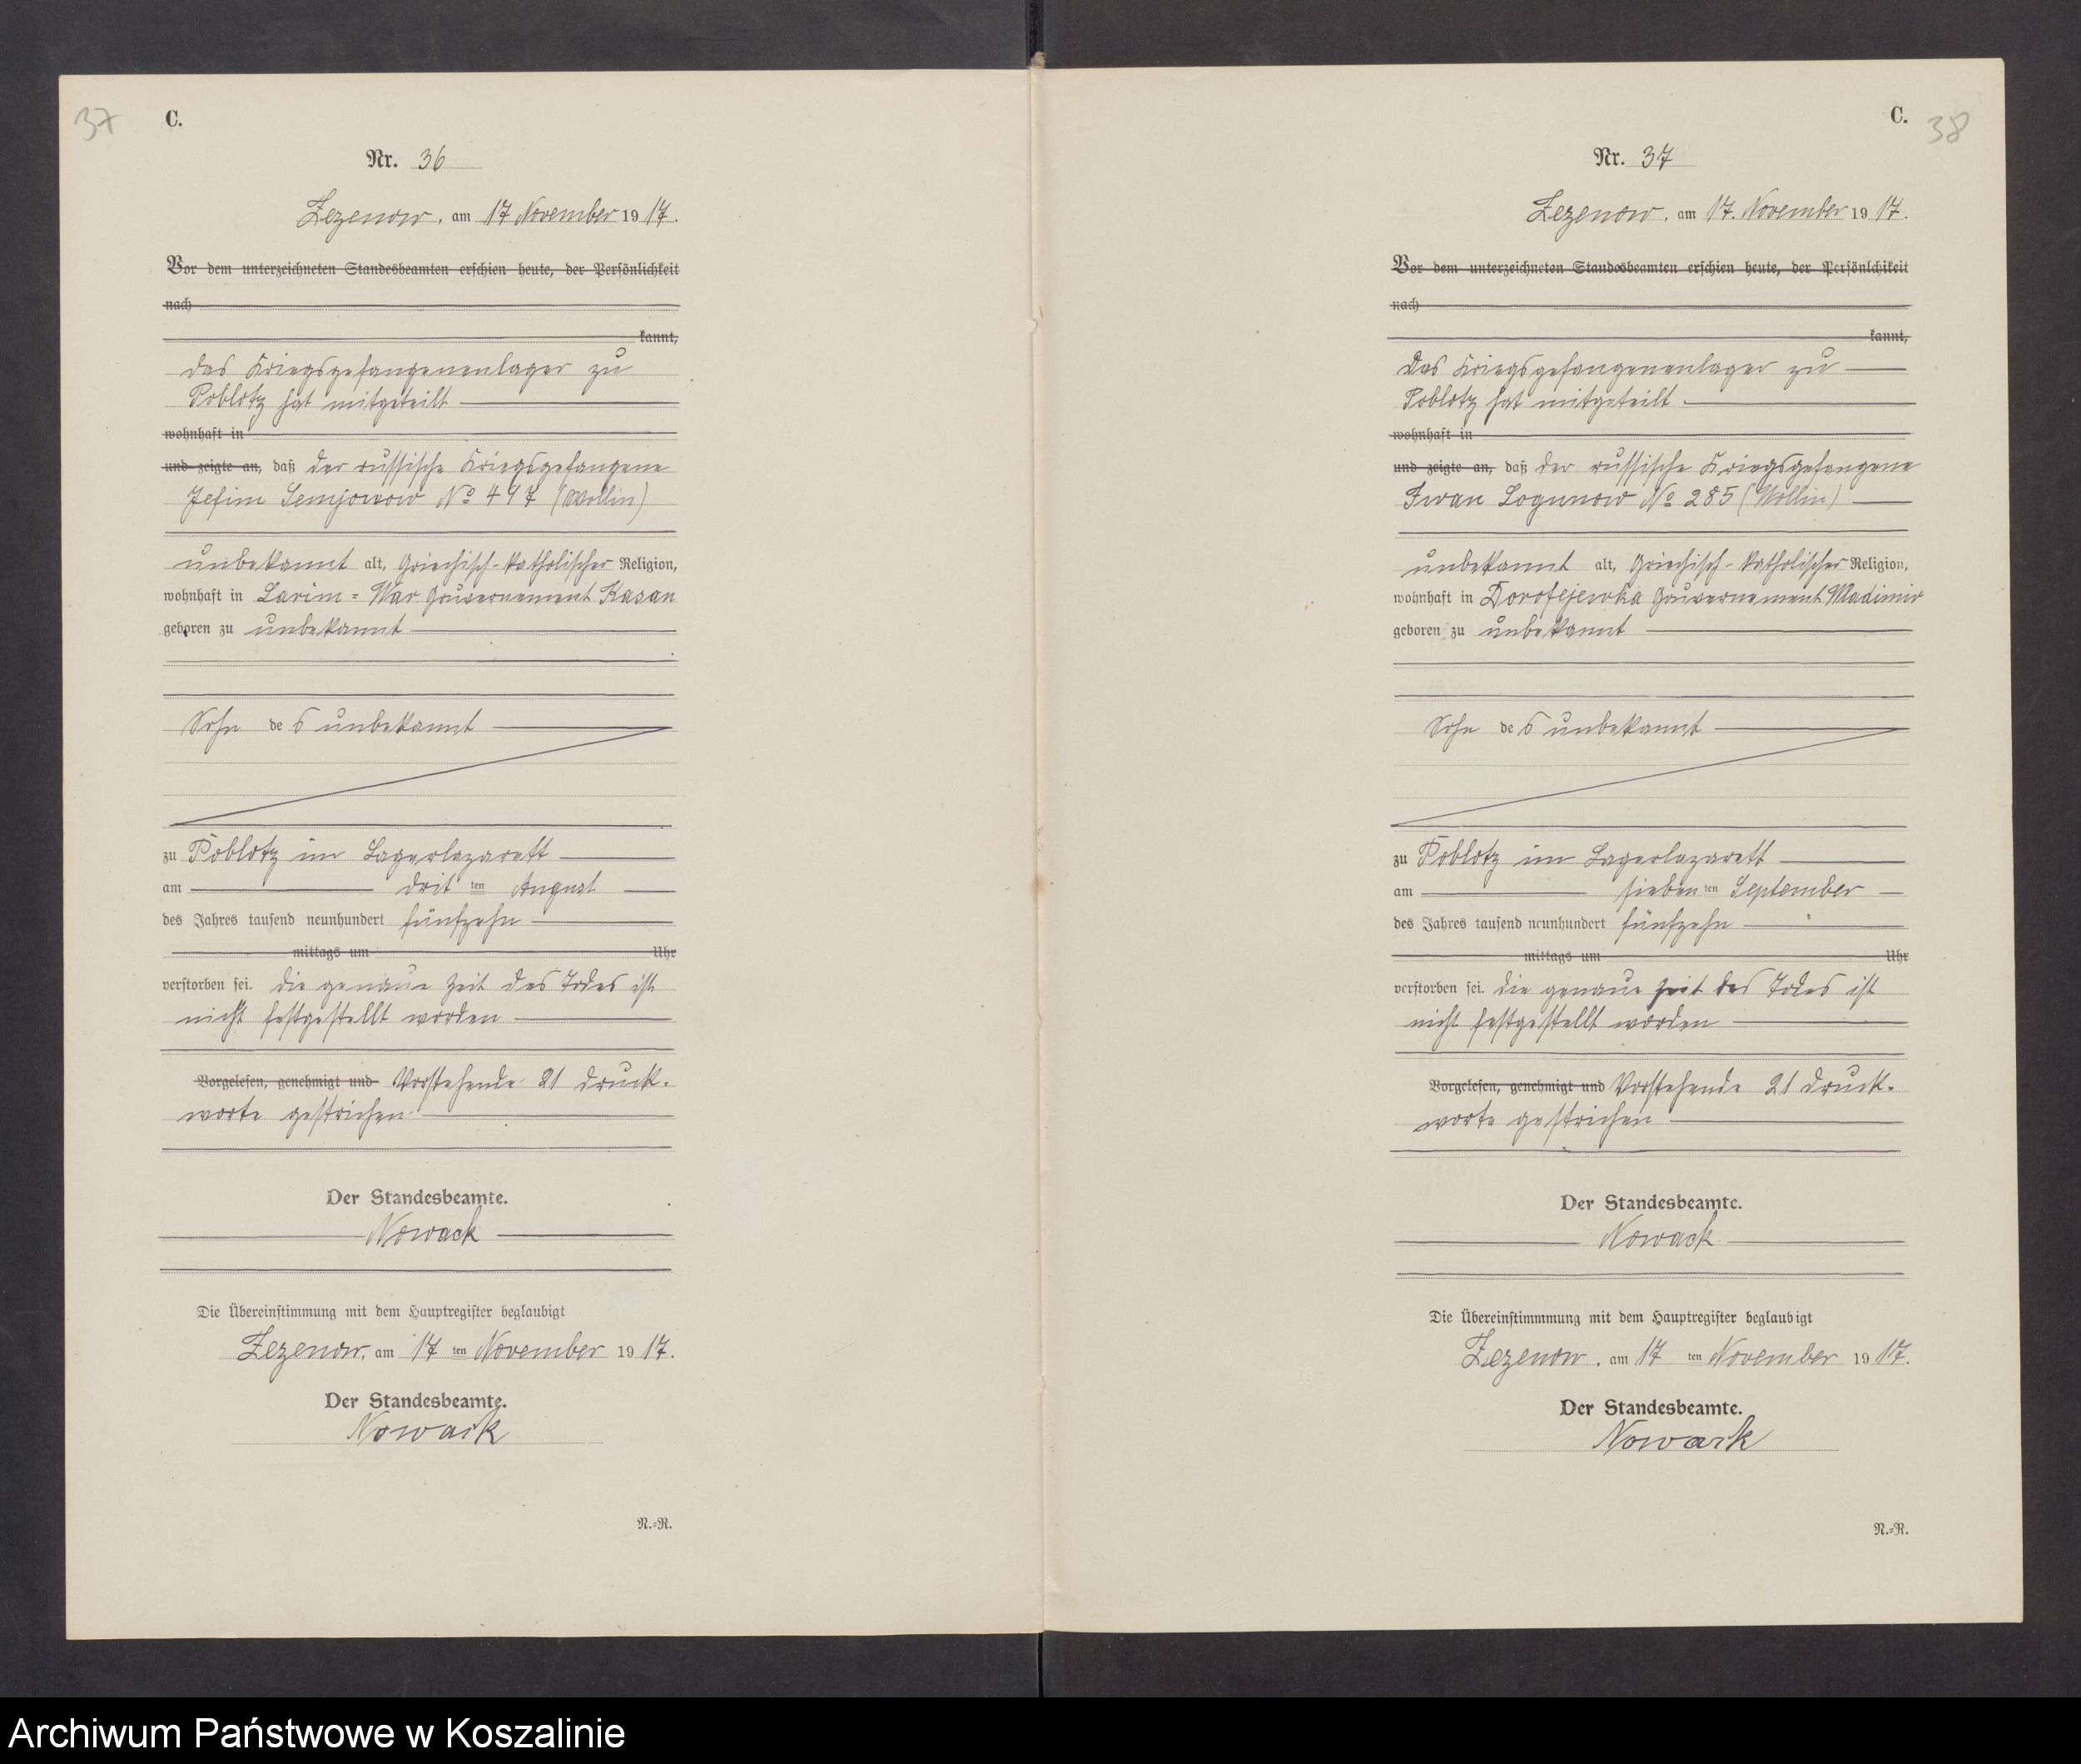 37
C.
Nr. 36
Zezenow, am 17 November 1917.
Vor dem unterzeichneten Standesbeamten erschien heute, der Persönlichkeit
nach
kannt,
das Kriegsgefangenenlager zu
Poblotz hat mitgeteilt
wohnhaft in
und zeigte an, daß der russische Kriegsgefangene
Jefim Semjonow No 497 (Wollin)
unbekannt alt, Griechisch-katholischer Religion,
wohnhaft in Larim = War Gouvernement Kasan
geboren zu unbekannt
Sohn des unbekannt
zu Poblotz im Lagerlazarett
am dritten August
des Jahres tausend neunhundert fünfzehn
mittags um Uhr
verstorben sei. die genaue Zeit des Todes ist
nicht festgestellt worden
Vorgelesen, genehmigt und Vorstehende 21 Druck-
worte gestrichen
Der Standesbeamte.
Nowack
Die Übereinstimmung mit dem Hauptregister beglaubigt
Zezenow, am 17ten November 1917.
Der Standesbeamte.
Nowack
N.=R.
C.
38
Nr. 37
Zezenow, am 17. November 1917.
Vor dem unterzeichneten Standesbeamten erschien heute, der Persönlchikeit
nach
kannt,
Das Kriegsgefangenenlager zu
Poblotz hat mitgeteilt
wohnhaft in
und zeigte an, daß der russische Kriegsgefangene
Iwan Logunow No 285 (Wollin)
unbekannt alt, Griechisch-katholischer Religion,
wohnhaft in Dorofejewka Gouvernement Wladimir
geboren zu unbekannt
Sohn des unbekannt
zu Poblotz im Lagerlazarett
am siebenten September
des Jahres tausend neunhundert fünfzehn
mittags um Uhr
verstorben sei. die genaue Zeit des Todes ist
nicht festgestellt worden
Vorgelesen, genehmigt und Vorstehende 21 Druck-
worte gestrichen
Der Standesbeamte.
Nowack
Die Übereinstimmmung mit dem Hauptregister beglaubigt
Zezenow, am 17ten November 1917.
Der Standesbeamte.
Nowack
N.=R.
Archiwum Państwowe w Koszalinie